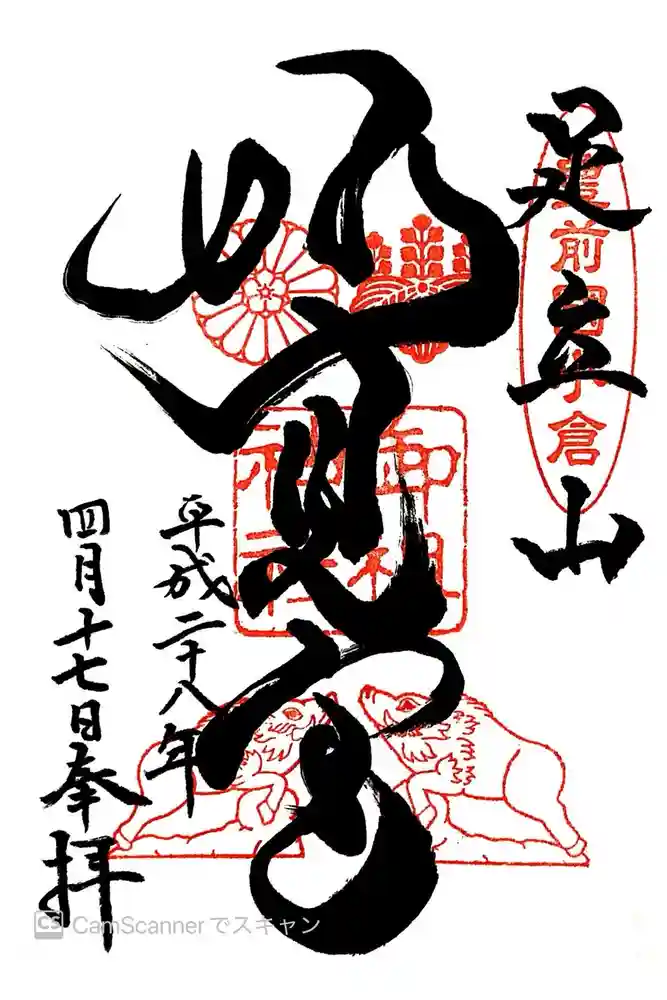 足立山
豊前国小倉
妙見宮
御祖
神社
平成二十八年
四月十七日奉拝
CS CamScanner でスキャン